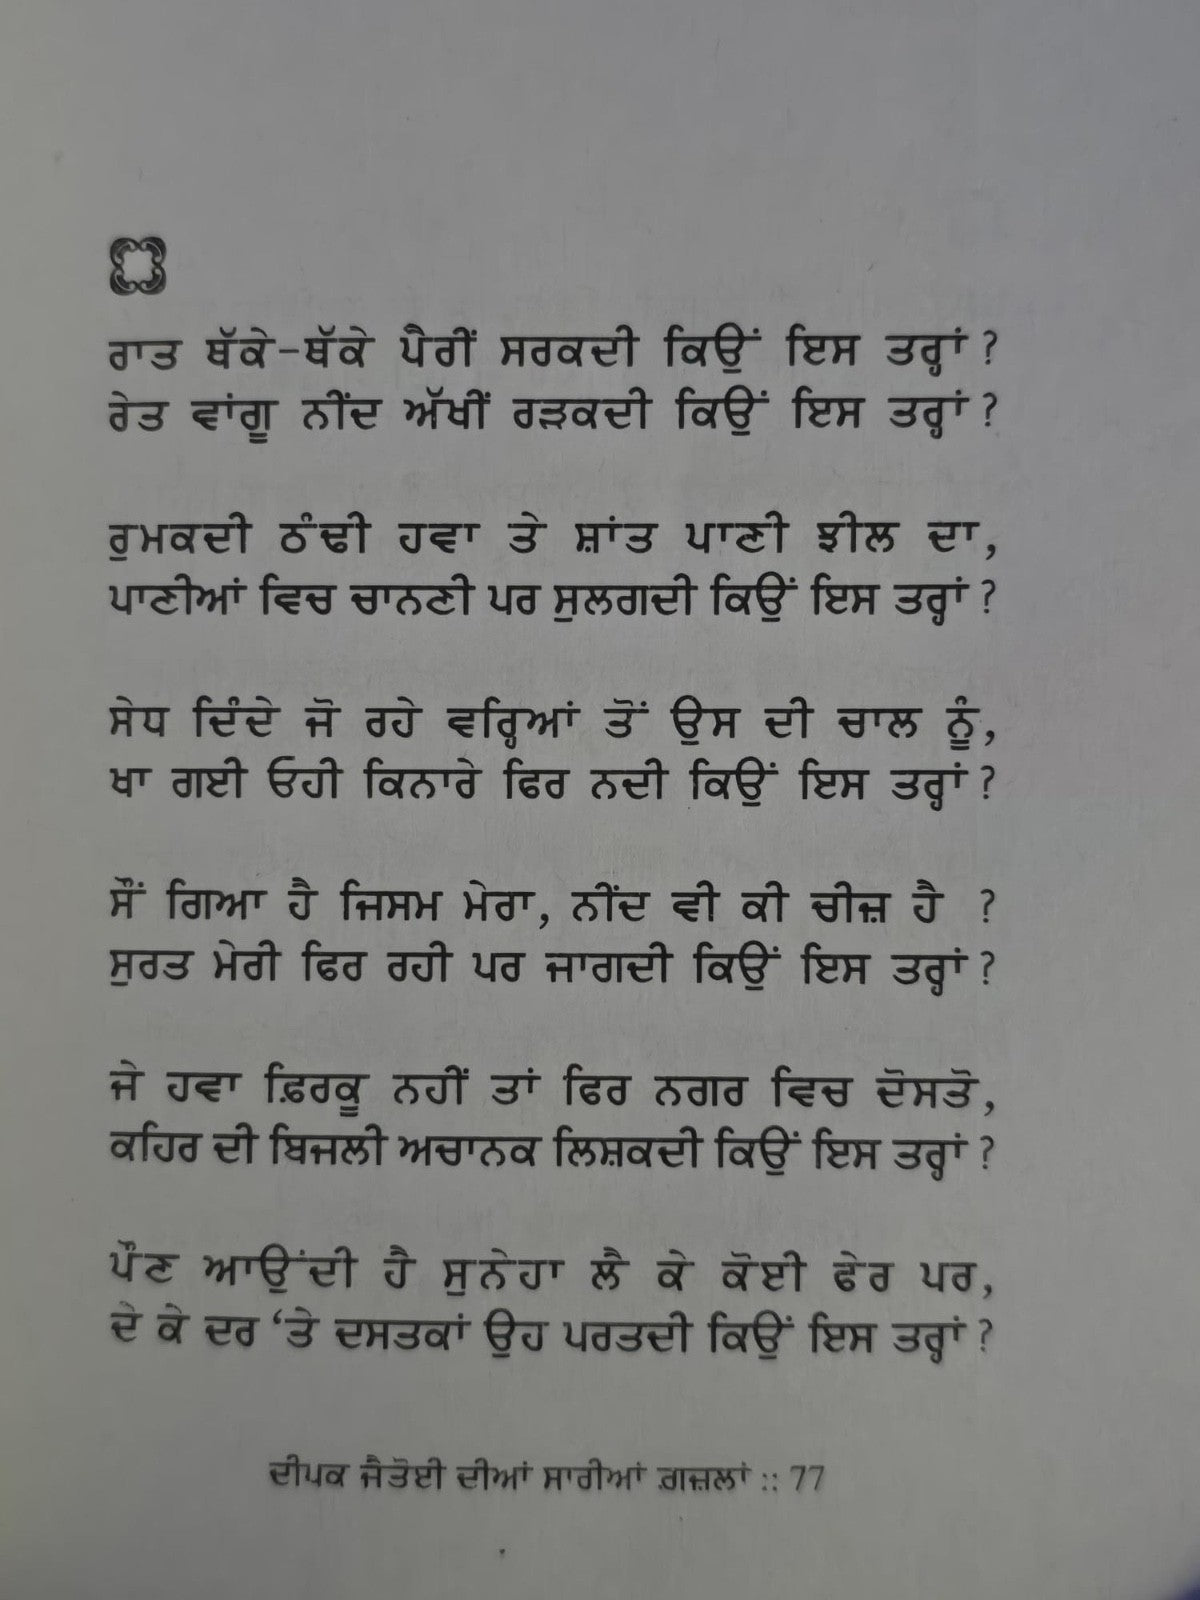 ਰਾਤ ਥੱਕੇ-ਥੱਕੇ ਪੈਰੀਂ ਸਰਕਦੀ ਕਿਉਂ ਇਸ ਤਰ੍ਹਾਂ ?
ਰੇਤ ਵਾਂਗੂ ਨੀਂਦ ਅੱਖੀਂ ਰੜਕਦੀ ਕਿਉਂ ਇਸ ਤਰ੍ਹਾਂ ?
ਰੁਮਕਦੀ ਠੰਢੀ ਹਵਾ ਤੇ ਸ਼ਾਂਤ ਪਾਣੀ ਝੀਲ ਦਾ,
ਪਾਣੀਆਂ ਵਿਚ ਚਾਨਣੀ ਪਰ ਸੁਲਗਦੀ ਕਿਉਂ ਇਸ ਤਰ੍ਹਾਂ ?
ਸੇਧ ਦਿੰਦੇ ਜੋ ਰਹੇ ਵਰ੍ਹਿਆਂ ਤੋਂ ਉਸ ਦੀ ਚਾਲ ਨੂੰ,
ਖਾ ਗਈ ਓਹੀ ਕਿਨਾਰੇ ਫਿਰ ਨਦੀ ਕਿਉਂ ਇਸ ਤਰ੍ਹਾਂ ?
ਸੌਂ ਗਿਆ ਹੈ ਜਿਸਮ ਮੇਰਾ, ਨੀਂਦ ਵੀ ਕੀ ਚੀਜ਼ ਹੈ ?
ਸੁਰਤ ਮੇਰੀ ਫਿਰ ਰਹੀ ਪਰ ਜਾਗਦੀ ਕਿਉਂ ਇਸ ਤਰ੍ਹਾਂ ?
ਜੇ ਹਵਾ ਫ਼ਿਰਕੂ ਨਹੀਂ ਤਾਂ ਫਿਰ ਨਗਰ ਵਿਚ ਦੋਸਤੋ,
ਕਹਿਰ ਦੀ ਬਿਜਲੀ ਅਚਾਨਕ ਲਿਸ਼ਕਦੀ ਕਿਉਂ ਇਸ ਤਰ੍ਹਾਂ ?
ਪੌਣ ਆਉਂਦੀ ਹੈ ਸੁਨੇਹਾ ਲੈ ਕੇ ਕੋਈ ਫੇਰ ਪਰ,
ਦੇ ਕੇ ਦਰ ‘ਤੇ ਦਸਤਕਾਂ ਉਹ ਪਰਤਦੀ ਕਿਉਂ ਇਸ ਤਰ੍ਹਾਂ ?
ਦੀਪਕ ਜੈਤੋਈ ਦੀਆਂ ਸਾਰੀਆਂ ਗ਼ਜ਼ਲਾਂ :: 77